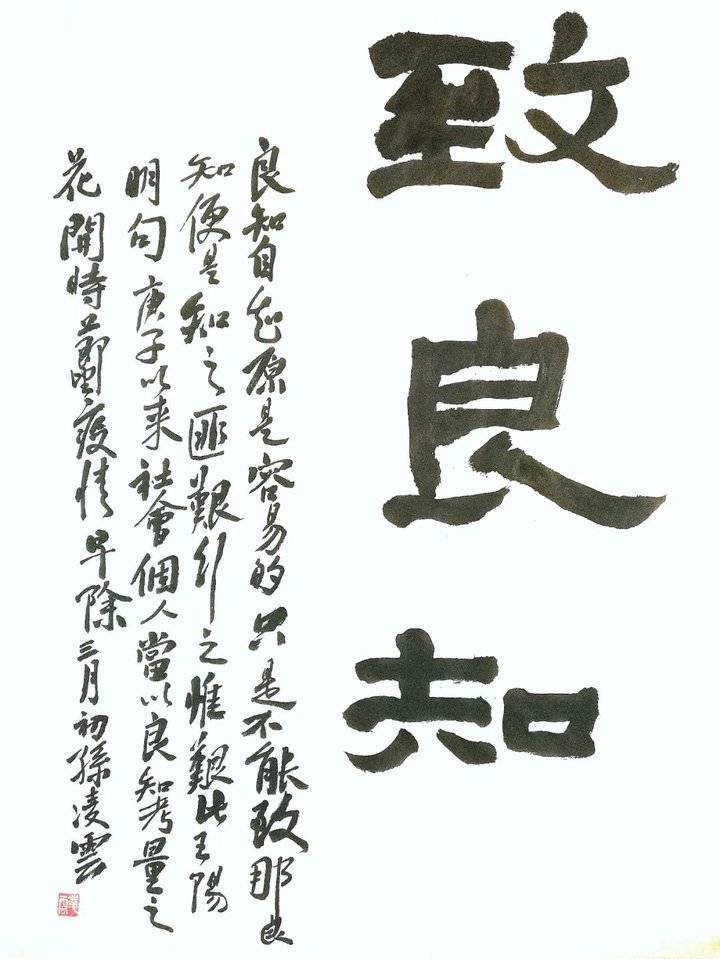 致良知
良知自知原是容易的只是不能致那良
知便是知之匪艱行之惟艱此王陽
明句庚子以來社會個人當以良知考量之
花開時節疫情早除三月初孫凌雲